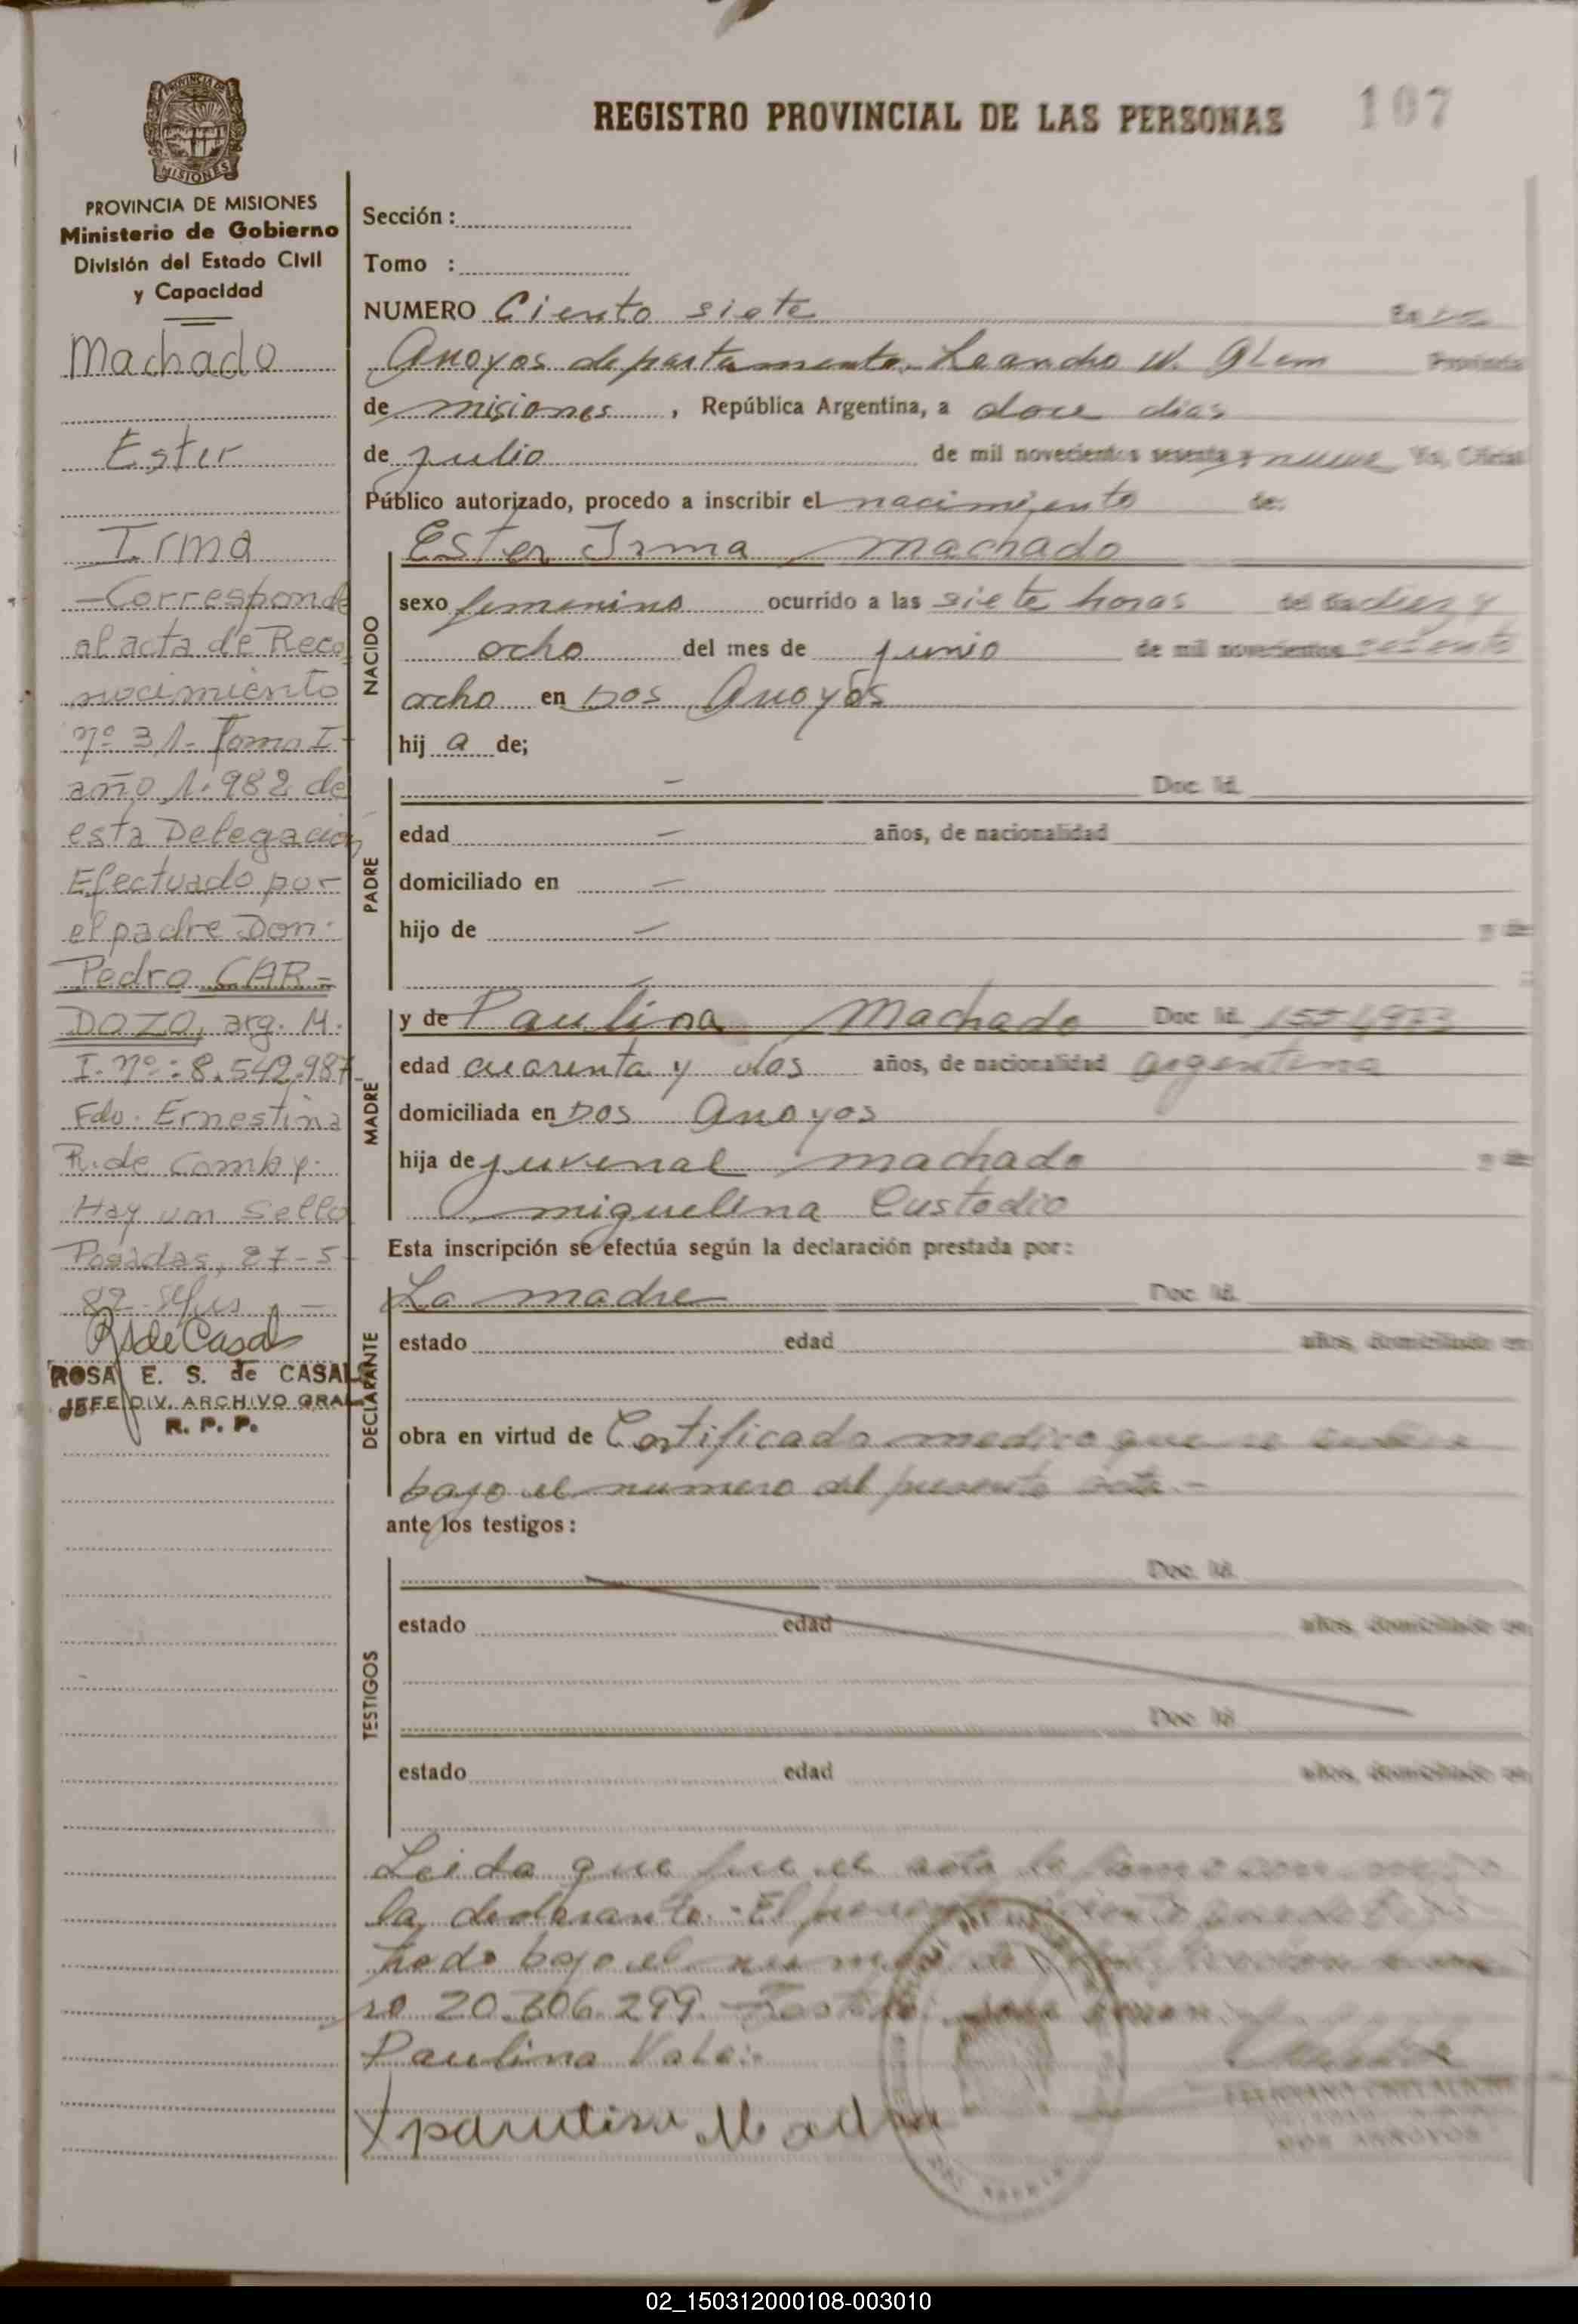 REGISTRO PROVINCIAL DE LAS PERSONAS
107
PROVINCIA DE MISIONES
Ministerio de Gobierno
División del Estado Civil
y Capacidad
Machado
Ester
Irma
-Corresponde
al acta de Reco
nocimiento
nº 31- Tomo I-
año 1.982 de
esta Delegación
Efectuado por
el padre Don:
Pedro CAR=
DOZO, arg. M.
I. nº: 8.542.987-
Fdo. Ernestina
R. de Comby.
Hay un Sello
Posadas, 27-5-
82
RSdeCasal
ROSA E. S. de CASALS
JEFE DIV. ARCHIVO GRAL
R. P. P.
Sección :
Tomo :
NUMERO Ciento siete En Dos
Arroyos departamento Leandro N. Alem Provincia
de misiones, República Argentina, a doce dias
de julio de mil novecientos sesenta y nueve Yo, Oficial
Público autorizado, procedo a inscribir el nacimiento de:
NACIDO
Ester Irma Machado
sexo femenino ocurrido a las siete horas del dia diez y
ocho del mes de junio de mil novecientos sesenta
ocho en Dos Arroyos
hij a de;
PADRE
- Doc. Id.
edad - años, de nacionalidad
domiciliado en -
hijo de - y de
MADRE
y de Paulina Machado Doc. Id.
edad cuarenta y dos años, de nacionalidad argentina
domiciliada en Dos Arroyos
hija de juvenal machado y de
miguelina Custodio
Esta inscripción se efectúa según la declaración prestada por:
DECLARANTE
La madre Doc. Id.
estado edad años, domiciliado en
obra en virtud de Certificado medico que se
bajo el numero del presente acta.-
ante los testigos:
TESTIGOS
Doc. Id.
estado edad años, domiciliado en
Doc. Id.
estado edad años, domiciliado en
Leida que fue el acta la
la declarante.- El
hado bajo el numero de
ro 20.306.299.- Testado:
Paulina Vale.
DOS ARROYOS
02_150312000108-003010